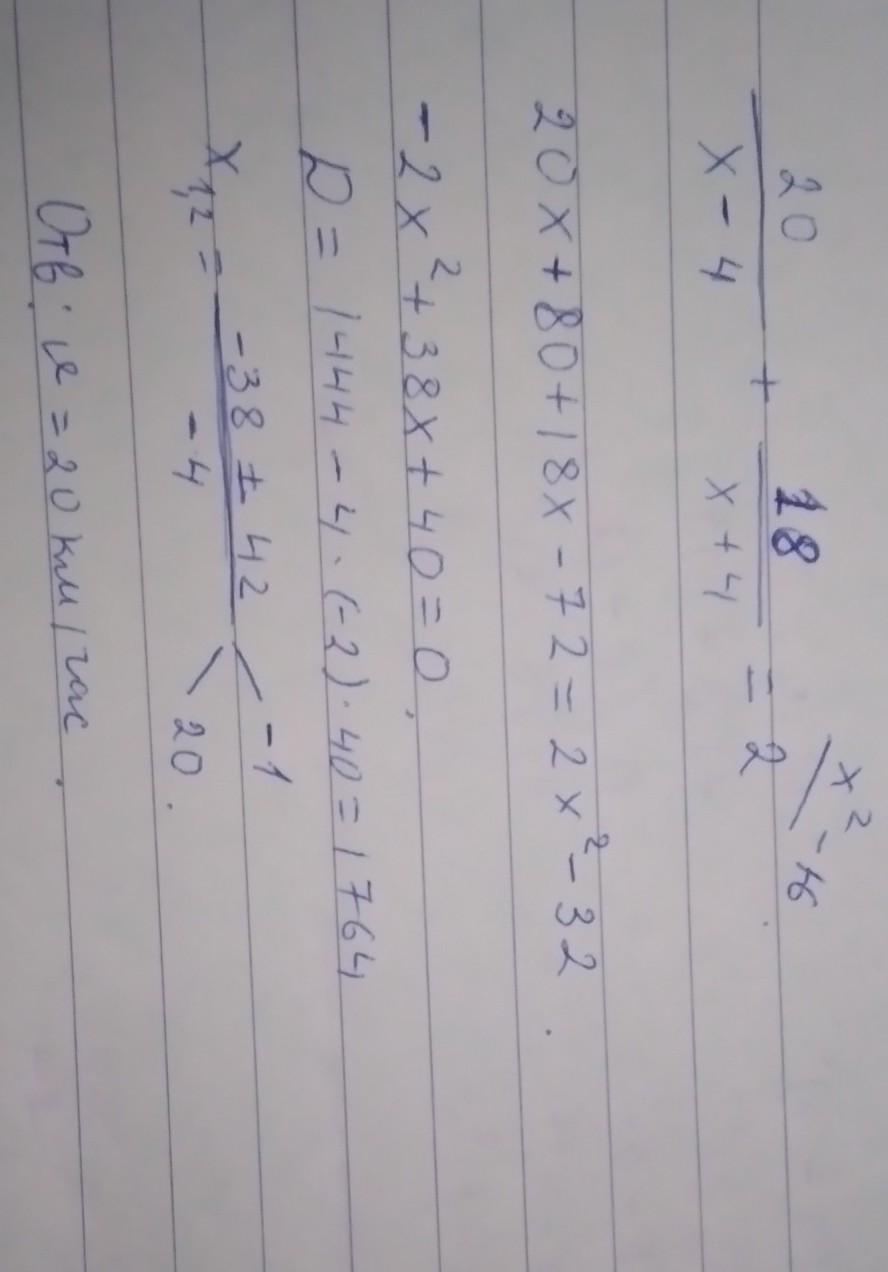 20/(x-4) + 18/(x+4) = 2 / x²-16.
20x+80+18x-72=2x²-32.
-2x²+38x+40=0.
D=1444-4·(-2)·40=1764
x1,2 = (-38±42)/-4 -1 20.
Отв: v=20 км/час.